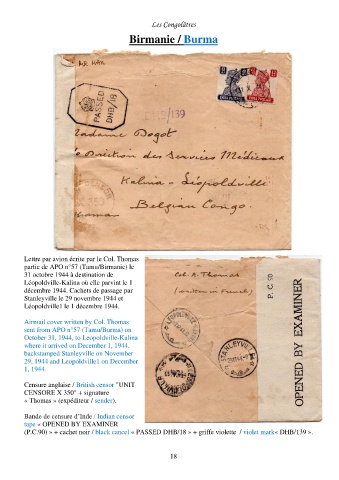 Les Congolâtres
Birmanie / Burma
AIR MAIL
PASSED
DHB/18
DHB/139
Madame Dogot
Direction des Services Médicaux
Kalina - Léopoldville
Belgian Congo.
Lettre par avion écrite par le Col. Thomas
partie de APO n°57 (Tamu/Birmanie) le
31 octobre 1944 à destination de
Léopoldville-Kalina où elle parvint le 1
décembre 1944. Cachets de passage par
Stanleyville le 29 novembre 1944 et
Léopoldville1 le 1 décembre 1944.
Airmail cover written by Col. Thomas
sent from APO n°57 (Tamu/Burma) on
October 31, 1944, to Leopoldville-Kalina
where it arrived on December 1, 1944,
backstamped Stanleyville on November
29, 1944 and Leopoldville1 on December
1, 1944.
Col. R. Thomas
(written in French)
STANLEYVILLE
P.C. 90
OPENED BY EXAMINER
Censure anglaise / British censor "UNIT
CENSORE X 350" + signature
« Thomas » (expéditeur / sender).
Bande de censure d'Inde / Indian censor
tape « OPENED BY EXAMINER
(P.C.90) » + cachet noir / black cancel « PASSED DHB/18 » + griffe violette / violet mark« DHB/139 ».
18